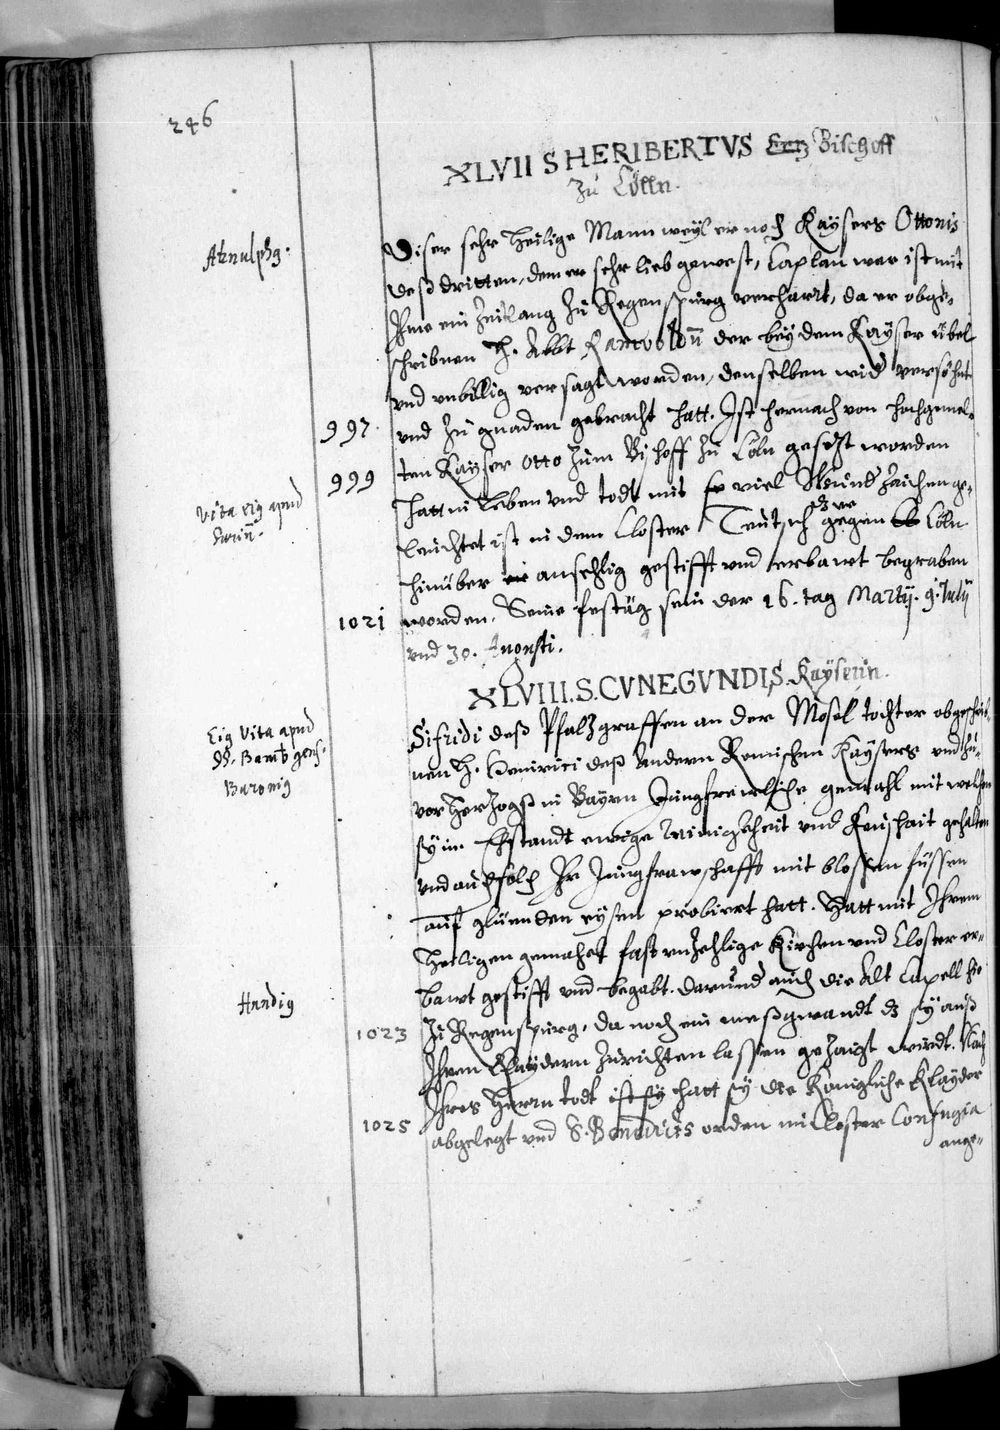 246
XLVII S HERIBERTVS Ertz Bischoff
zu Cölln.
Arnulphg.
Diser sehr heilige Mann weyl er noch Kaysers Ottonis
deß dritten, dem er sehr lieb gewest, Caplan war ist mit
Ihme ein Zeitlang zu Regenspurg verharrt, da er obge-
schribnen H. Abbt Ramvoldū der bey dem Kayser übel
vnd vnbillig versagt worden, denselben wid versöhnt
997
vnd zu gnaden gebracht hatt. Ist hernach von hochgemel-
999
ten Kayser Otto zum Bischoff zu Cöln gesetzt worden
Vita eig apud
Suriū.
hatt in Leben vnd todt mit viel Wunderzaichen ge-
leuchtet ist in dem Closter Teutsch dz er gegen Cöln
hinüber ansehlig gestifft vnd erbawt begraben
1021
worden. Seine festäg sein der 16. tag Martij. 9. Julij
vnd 30. Augusti.
XLVIII. S. CVNEGVNDIS. Kayserin.
Eig Vita apud
SS. Bamb gens.
Baronig
Sifridi deß Pfaltzgraffen an der Mosel tochter obgeschrib-
nen H. Heinrici deß Andern Romischen Kaysers vnd zu-
vor Hertzogß in Bayrn Jungfrewliche gemahl mit welchem
sy im Ehstandt ewige Reinigkheit vnd Keuschait gehalten
vnd auch solch Ihr Jungfrawschafft mit blossen füssen
auf glüenden eysen probiert hatt. Hatt mit Ihrem
Heiligen gemahel fast vnzehlige Kirchen vnd Closter er-
bawt gestifft vnd begabt. darund auch die Alt Capell hie
Hundig
1023
zu Regenspurg, da noch ein meßgwandt dz sy auß
Ihren Klaydern zurichten lassen gezaigt wirdt. Nach
Ihres Herrn todt ist sy hatt sy die Konigliche Klayder
1025
abgelegt vnd S. Benedicts orden im Closter Confugia
ange-